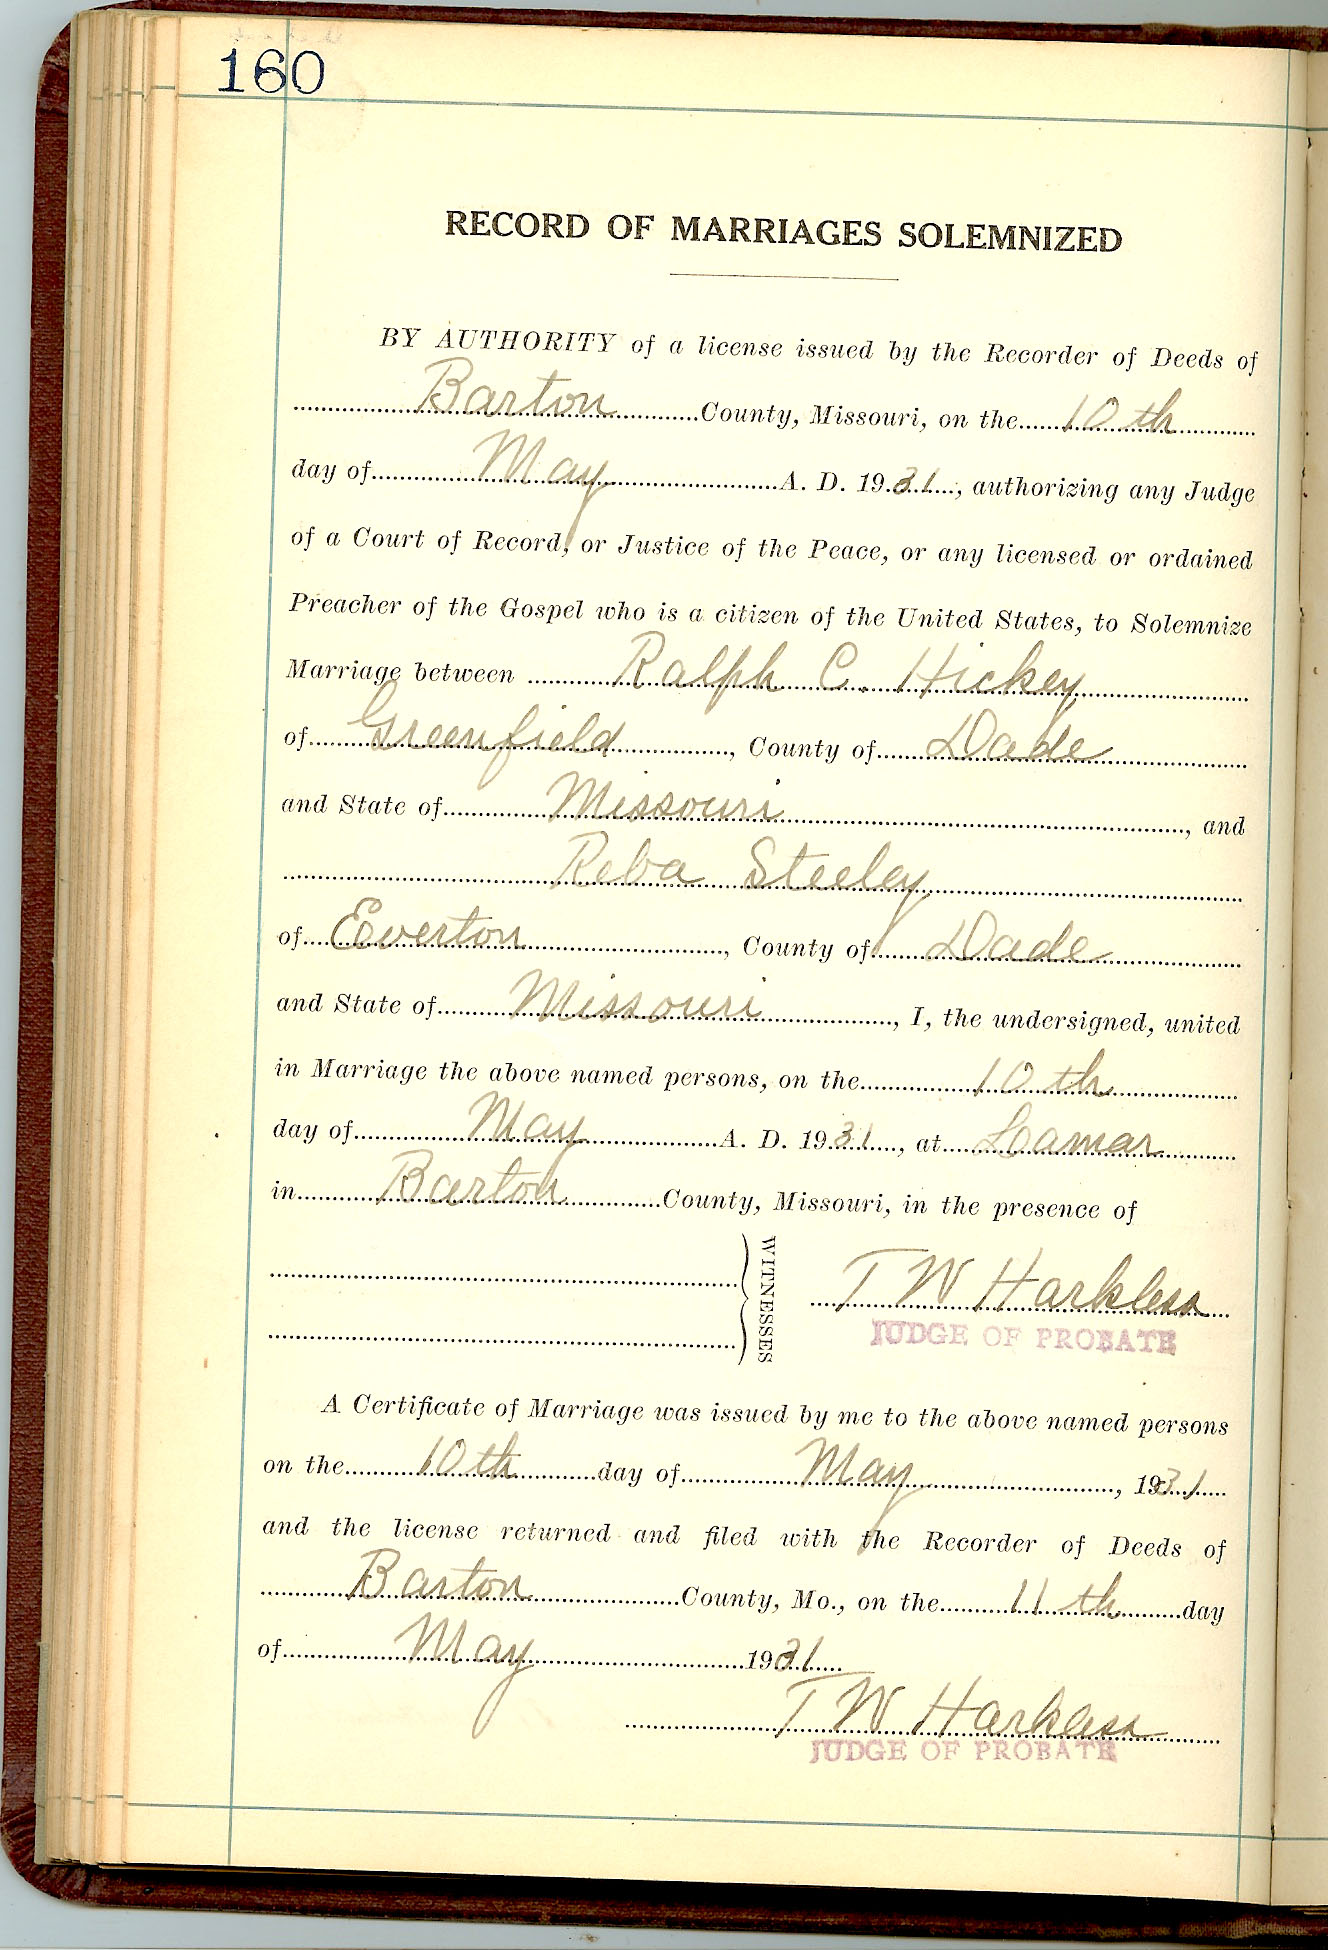 160
RECORD OF MARRIAGES SOLEMNIZED
BY AUTHORITY of a license issued by the Recorder of Deeds of
Barton County, Missouri, on the 10th
day of May A. D. 1931, authorizing any Judge
of a Court of Record, or Justice of the Peace, or any licensed or ordained
Preacher of the Gospel who is a citizen of the United States, to Solemnize
Marriage between Ralph C. Hickey
of Greenfield, County of Dade
and State of Missouri, and
Reba Steeley
of Everton, County of Dade
and State of Missouri, I, the undersigned, united
in Marriage the above named persons, on the 10th
day of May A. D. 1931, at Lamar
in Barton County, Missouri, in the presence of
WITNESSES
T W Harkless
JUDGE OF PROBATE
A Certificate of Marriage was issued by me to the above named persons
on the 10th day of May, 1931
and the license returned and filed with the Recorder of Deeds of
Barton County, Mo., on the 11th day
of May 1931
T W Harkless
JUDGE OF PROBATE